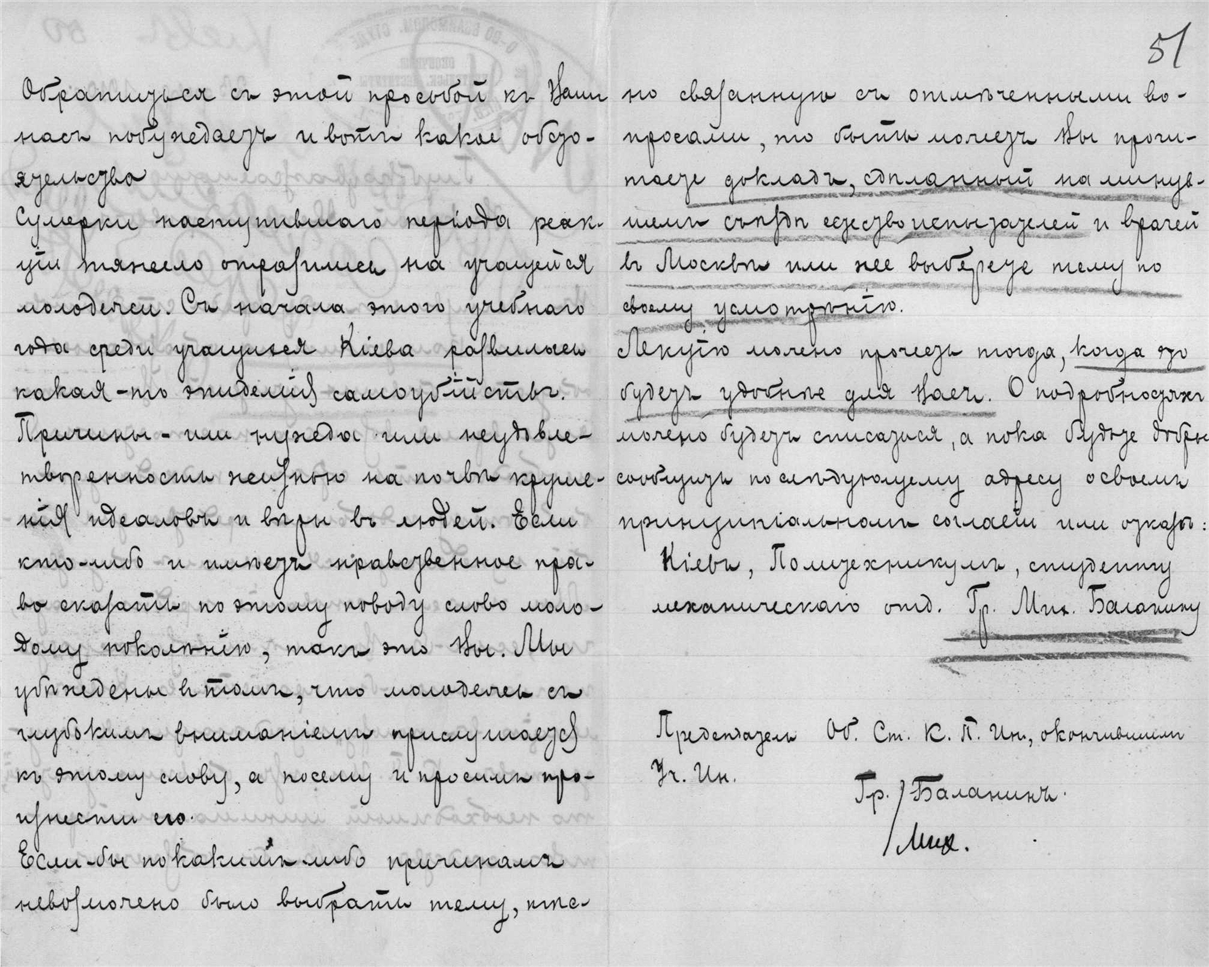 51
Обратиться съ этой прособой къ Вамъ
насъ побуждаетъ и вотъ какое обсто-
ятельство
Сумерки наступившаго періода реак-
ціи тяжело отразились на учащейся
молодежи. Съ начала этого учебнаго
года среди учащихся Кіева развилась
какая-то эпидемія самоубійствъ.
Причины - или нужда или неудовле-
творенность жизнью на почвѣ круше-
нія идеаловъ и вѣры въ людей. Если
кто-либо и имѣетъ нравственное пра-
во сказать по этому поводу слово моло-
дому поколѣнію, такъ это Вы. Мы
убѣждены въ томъ, что молодежь съ
глубокимъ вниманіемъ прислушается
къ этому слову, а посему и просимъ про-
изнести его.
Если-бы по какимъ-либо причинамъ
невозможно было выбрать тему, тѣс-
но связанную съ отмѣченными во-
просами, то быть можетъ Вы прочи-
таете докладъ, сдѣланный на минув-
шемъ съѣздѣ естествоиспытателей и врачей
въ Москвѣ или же выберете тему по
своему усмотрѣнію.
Лекцію можно прочесть тогда, когда это
будетъ удобнѣе для Васъ. О подробностяхъ
можно будетъ списаться, а пока будьте добры
сообщить по слѣдующему адресу о своемъ
принципіальномъ согласіи или отказѣ:
Кіевъ, Политехникумъ, студенту
механическаго отд. Гр. Мих. Баланину
Предсѣдатель Об. Ст. К. П. Ин., окончившихъ
Уч. Ин.
Гр. Баланинъ.
Мих.